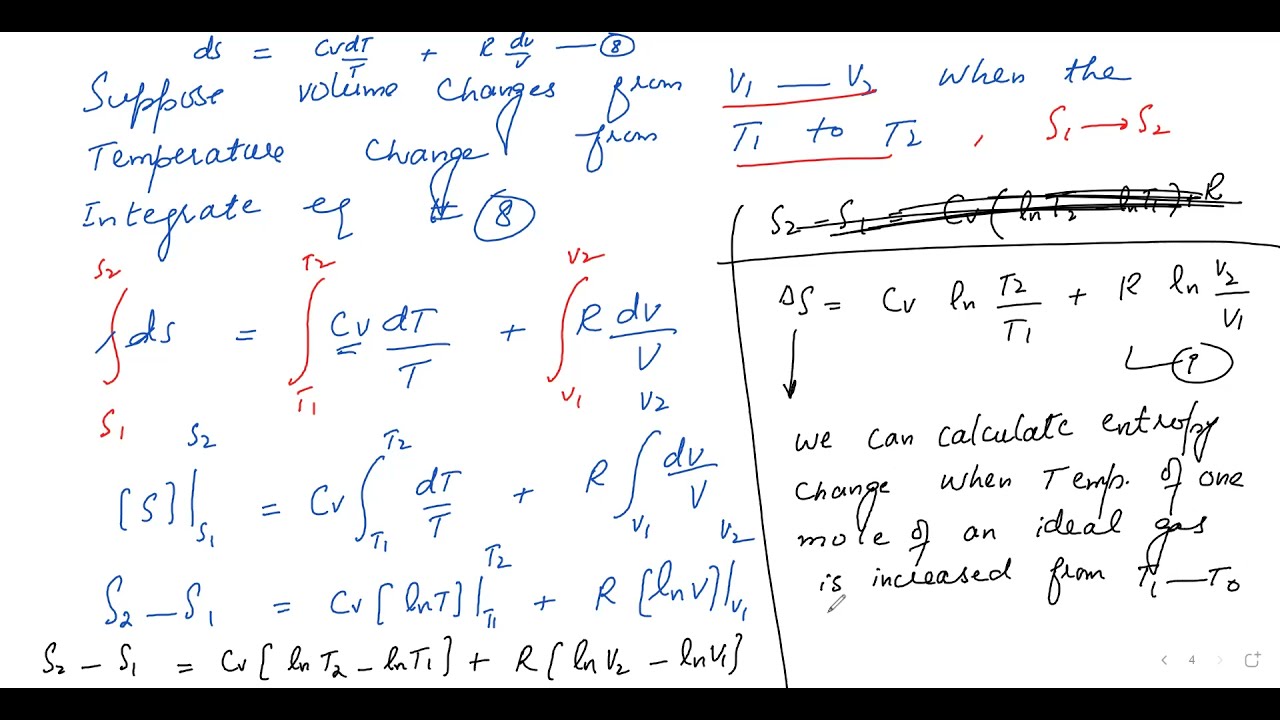 ds = CvdT/T + R dv/v — ⑧
Suppose volume changes from V1 — V2 when the
Temperature change from T1 to T2 , S1 → S2
Integrate eq # ⑧
∫_{S1}^{S2} ds = ∫_{T1}^{T2} Cv dT/T + ∫_{V1}^{V2} R dv/V
[S]|_{S1}^{S2} = Cv ∫_{T1}^{T2} dT/T + R ∫_{V1}^{V2} dv/V
S2 — S1 = Cv [lnT]|_{T1}^{T2} + R [lnV]|_{V1}^{V2}
S2 - S1 = Cv [ lnT2 - lnT1 ] + R [ lnV2 - lnV1 ]
S2 - S1 = Cv ( lnT2 - lnT1 ) + R
ΔS = Cv ln T2/T1 + R ln V2/V1
⑨
we can calculate entropy
change when Temp. of one
mole of an ideal gas
is increased from T1 — T0
4